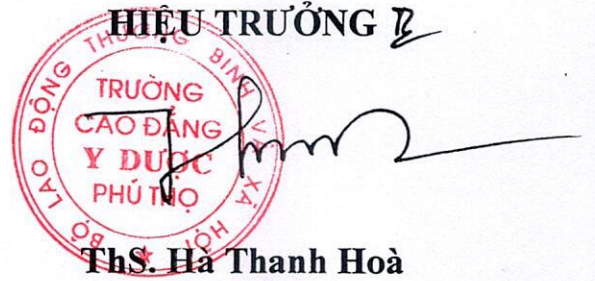 HIỆU TRƯỞNG
BỘ LAO ĐỘNG THƯƠNG BINH VÀ XÃ HỘI
TRƯỜNG
CAO ĐẲNG
Y DƯỢC
PHÚ THỌ
ThS. Hà Thanh Hoà